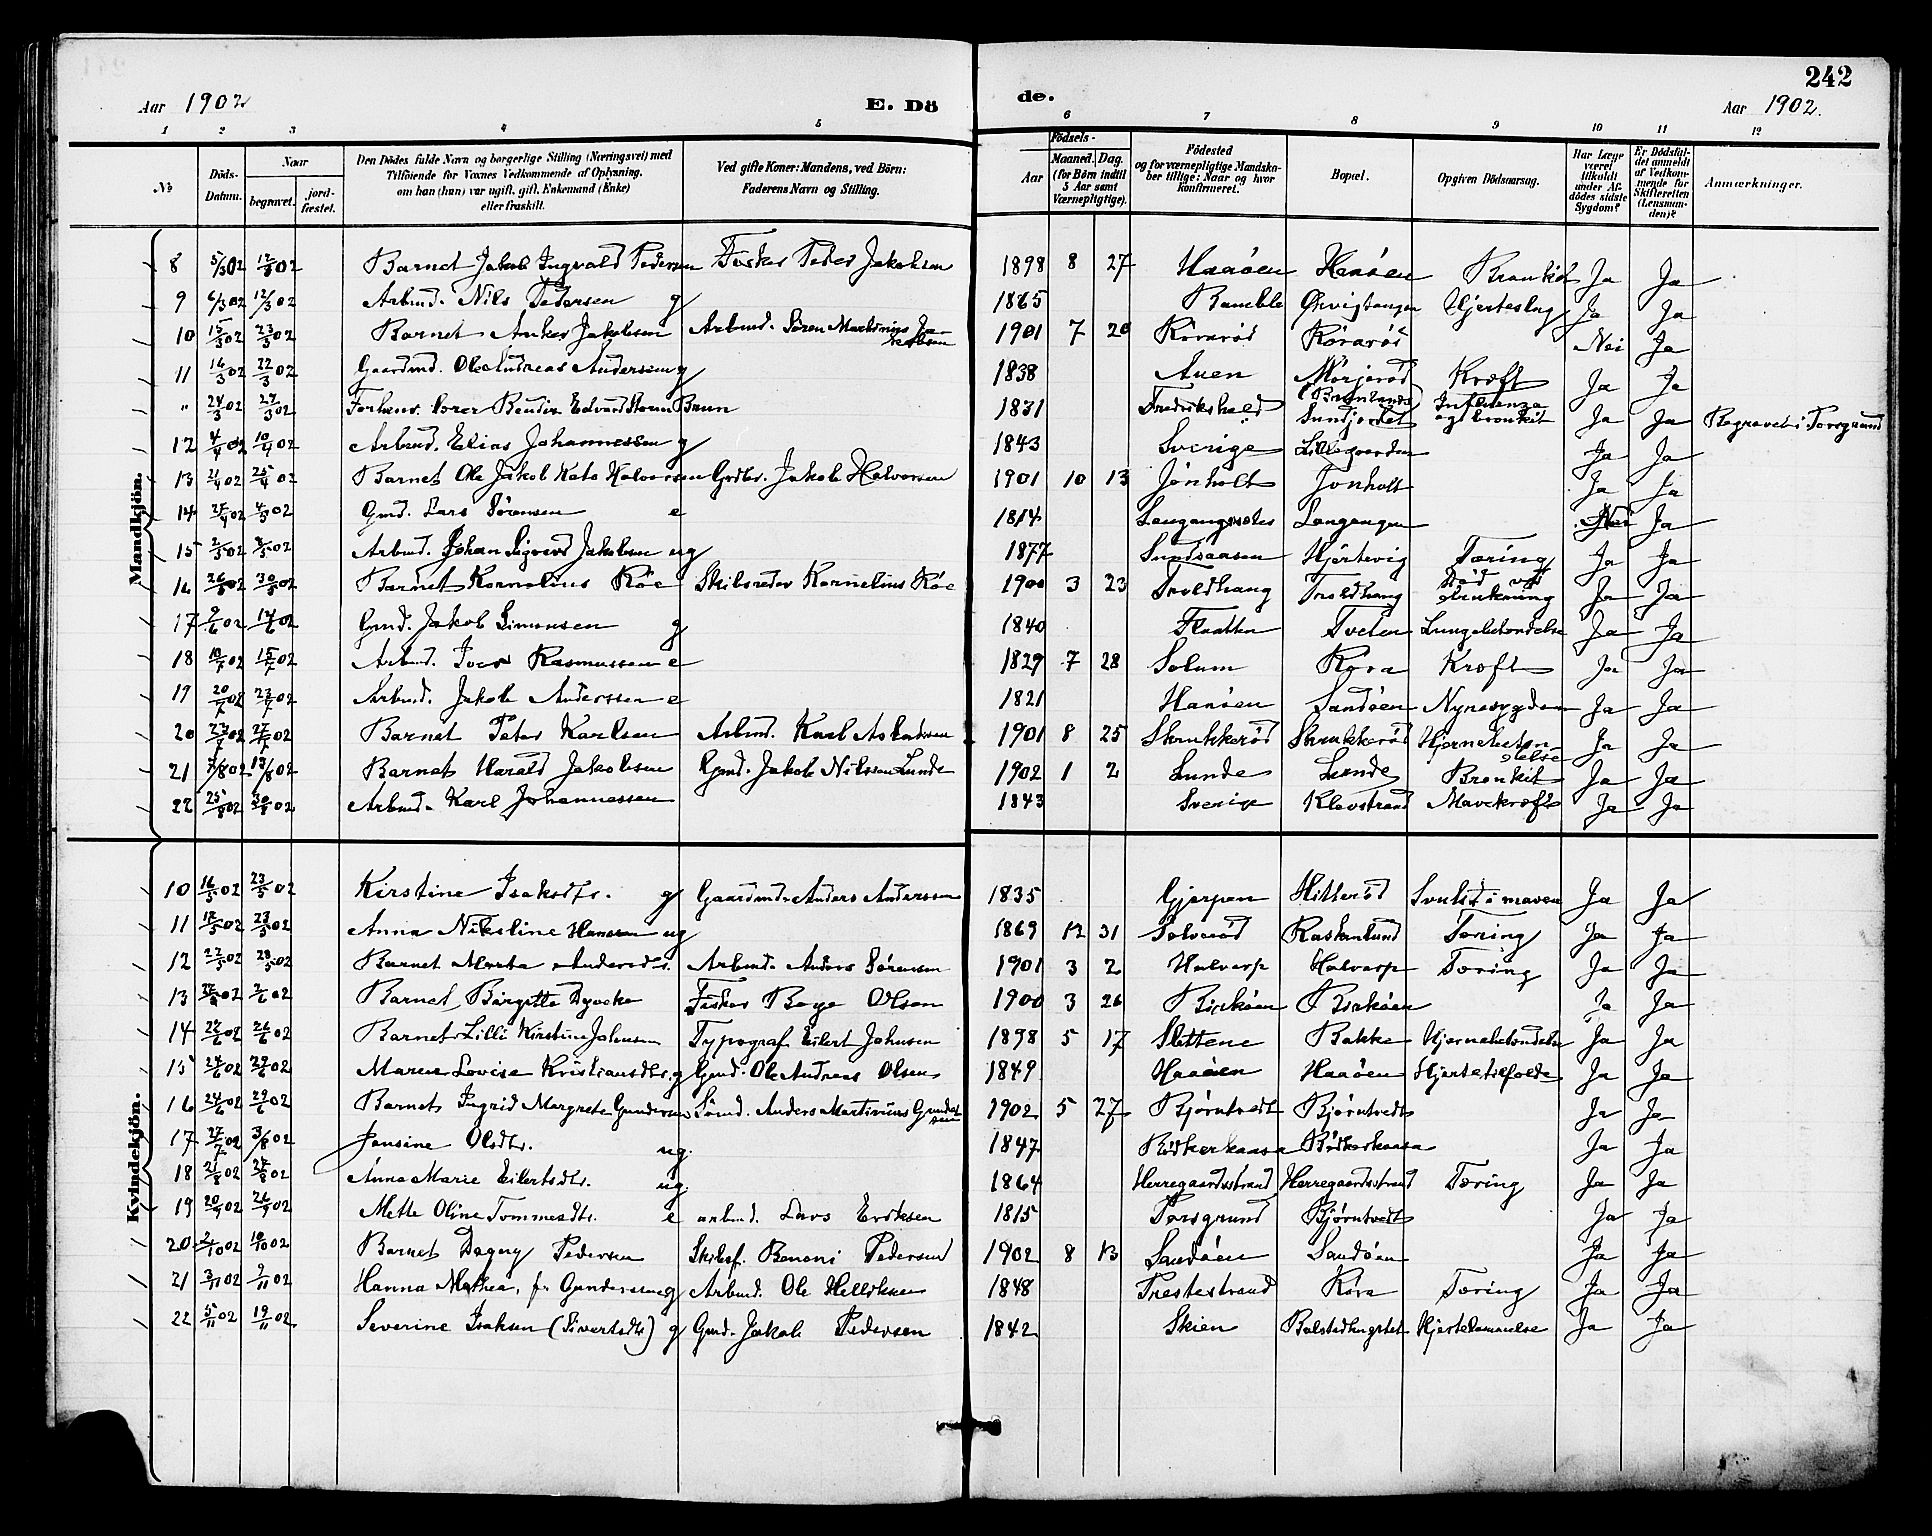 242
Aar 1902 E. Dö de. Aar 1902.
1 2 3 4 5 6 7 8 9 10 11 12
No
Döds-Datum.
Naar
begravet.
jord-fæstet.
Den Dödes fulde Navn og borgerlige Stilling (Næringsvei) med
Tilföiende for Voxnes Vedkommende af Oplysning,
om han (hun) var ugift, gift, Enkemand (Enke)
eller fraskilt.
Ved gifte Koner: Mandens, ved Börn:
Faderens Navn og Stilling.
Födsels-
Aar
Maaned. Dag.
(for Börn indtil
5 Aar samt
Værnepligtige).
Födested
og for værnepligtige Mandska-
ber tillige: Naar og hvor
konfirmeret.
Bopæl.
Opgiven Dödsaarsag.
Har Læge
været
tilkaldt
under Af-
dödes sidste
Sygdom?
Er Dödsfal-
det anmeldt
af Vedkom-
mende for
Skifteretten
(Lensman-
den)?
Anmærkninger.
Mandkjön.
8 5/3 02 12/3 02 Barnet Jakob Ingvald Pedersen Fisker Peder Jakobsen 1898 8 27 Haaöen Haaöen Bronkit Ja Ja
9 6/3 02 12/3 02 Arbmd. Nils Pedersen g 1865 Bamble Ørvigtangen Hjerteslag Ja Ja
10 15/3 02 23/3 02 Barnet Anker Jakobsen Arbmd. Sören Martinius Jakobsen 1901 7 20 Röraröd Röraröd Nei Ja
11 16/3 02 22/3 02 Gaardmd. Ole Andreas Anderssen g 1838 Auen Mörjeröd Kræft Ja Ja
" 24/3 02 27/3 02 Forhenv. Edvard Storm Brun 1831 Fredrikshald Sundjordet Influenza og bronkit Ja Ja Begravet i Porsgrund
12 4/4 02 10/4 02 Arbmd. Elias Johannessen g 1843 Sverige Lillegaarden Ja Ja
13 21/4 02 25/4 02 Barnet Ole Jakob Kato Halvorsen Grdbr. Jakob Halvorsen 1901 10 13 Jönholt Jönholt Ja Ja
14 27/4 02 4/5 02 Gmd. Lars Sörensen e 1814 Langangen Nei Ja
15 2/5 02 8/5 02 Arbmd. Johan Sigvard Jakobsen ug 1877 Sundsaasen Hjertevig Tæring Ja Ja
16 26/5 02 30/5 02 Barnet Kornelius Röe Skibsreder Kornelius Röe 1900 3 23 Troldhaug Troldhaug Död ved drukning Ja Ja
17 9/6 02 14/6 02 Gmd. Jakob Simonsen g 1840 Flaatten Tveten Lungebetændelse Ja Ja
18 10/7 02 15/7 02 Arbmd. Iver Rasmussen e 1829 7 28 Solum Röra Kræft Ja Ja
19 20/7 02 23/7 02 Arbmd. Jakob Anderssen e 1821 Haaöen Sandöen Nyresygdom Ja Ja
20 23/7 02 27/7 02 Barnet Peter Karlsen Arbmd. Karl 1901 8 25 Skrukkeröd Skrukkeröd Hjernebetændelse Ja Ja
21 7/8 02 13/8 02 Barnet Harald Jakobsen Gmd. Jakob Nilssen Lunde 1902 1 2 Lunde Lunde Bronkit Ja Ja
22 25/8 02 30/8 02 Arbmd. Karl Johannessen 1843 Sverige Klevstrand Mavekræft Ja Ja
Kvindekjön.
10 16/5 02 23/5 02 Kirstine Isaksdtr. g Gaardmd. Anders Anderssen 1835 Gjerpen Hitteröd Svulst i maven Ja Ja
11 18/5 02 23/5 02 Anna Nikoline Hansen ug 1869 12 31 Solveröd Raskenlund Tæring Ja Ja
12 22/5 02 28/5 02 Barnet Marta Andersdtr. Arbmd. Anders Sörensen 1901 3 2 Halvarp Halvarp Tæring Ja Ja
13 28/5 02 2/6 02 Barnet Birgitte Dyveke Fisker Boye Olsen 1900 3 26 Birköen Birköen Ja Ja
14 22/6 02 26/6 02 Barnet Lilli Kirstine Johnsen Typograf Eilert Johnsen 1898 5 17 Slettene Bakke Hjernebetændelse Ja Ja
15 24/6 02 29/6 02 Maren Lovise Kristiansdtr. g Gmd. Ole Andreas Olsen 1849 Haaöen Haaöen Hjertetilfælde Ja Ja
16 24/6 02 29/6 02 Barnet Ingrid Margrete Gundersen Sömd. Anders Martinius Gundersen 1902 5 27 Björntvedt Björntvedt Ja Ja
17 27/7 02 3/8 02 Jensine Olsdtr. ug. 1847 Bödkerkaasa Bödkerkaasa Ja Ja
18 21/8 02 27/8 02 Anna Marie Eilertsdtr. ug. 1864 Herregaardsstrand Herregaardsstrand Tæring Ja Ja
19 20/9 02 26/9 02 Mette Oline Tommesdtr. e arbmd. Lars Eriksen 1815 Porsgrund Björntvedt Ja Ja
20 2/10 02 10/10 02 Barnet Dagny Pedersen Skibsf. Benoni Pedersen 1902 8 13 Sandöen Sandöen Ja Ja
21 3/11 02 9/11 02 Hanna Mathea, f. Gundersen g Arbmd. Ole Helliksen 1848 Prestestrand Röra Tæring Ja Ja
22 5/11 02 19/11 02 Severine Isaksen (Sivertsdtr) g Gmd. Jakob Pedersen 1842 Skien Bolstadhugstet Hjertelammelse Ja Ja